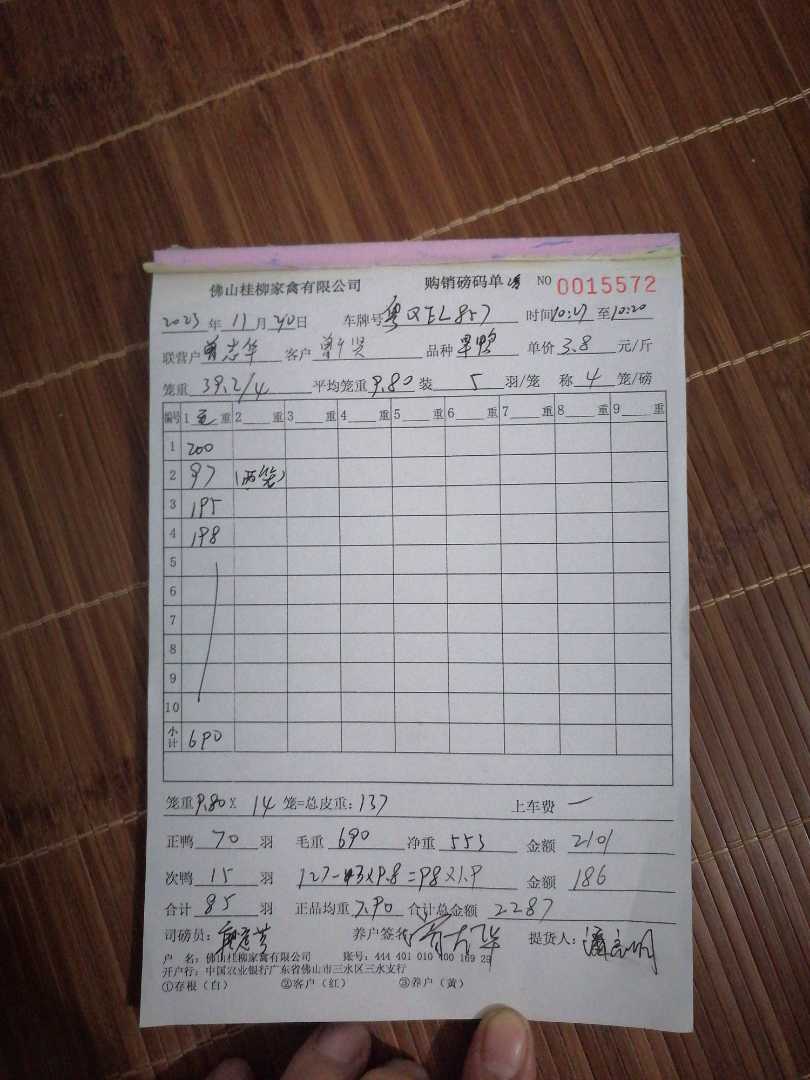 佛山桂柳家禽有限公司 购销磅码单 NO 0015572
2023年11月20日 车牌号粤QEL857 时间10:17至10:20
联营户曾志华 客户曾 贤 品种 单价3.8元/斤
笼重39.2/4 平均笼重9.80装5羽/笼 称4笼/磅
编号 1毛重 2重 3重 4重 5重 6重 7重 8重 9重
1 200
2 97 (两笼)
3 195
4 198
5
6
7
8
9
10
小计 690
笼重9.80X14笼=总皮重:137 上车费一
正鸭70羽 毛重690 净重553 金额2101
次鸭15羽 127-3x9.8=98x1.9 金额186
合计85羽 正品均重7.90 合计总金额2287
司磅员: 养户签名 提货人:
户名:佛山桂柳家禽有限公司 账号:444 401 010 400 169 29
开户行:中国农业银行广东省佛山市三水区三水支行
①存根(白) ②客户(红) ③养户(黄)